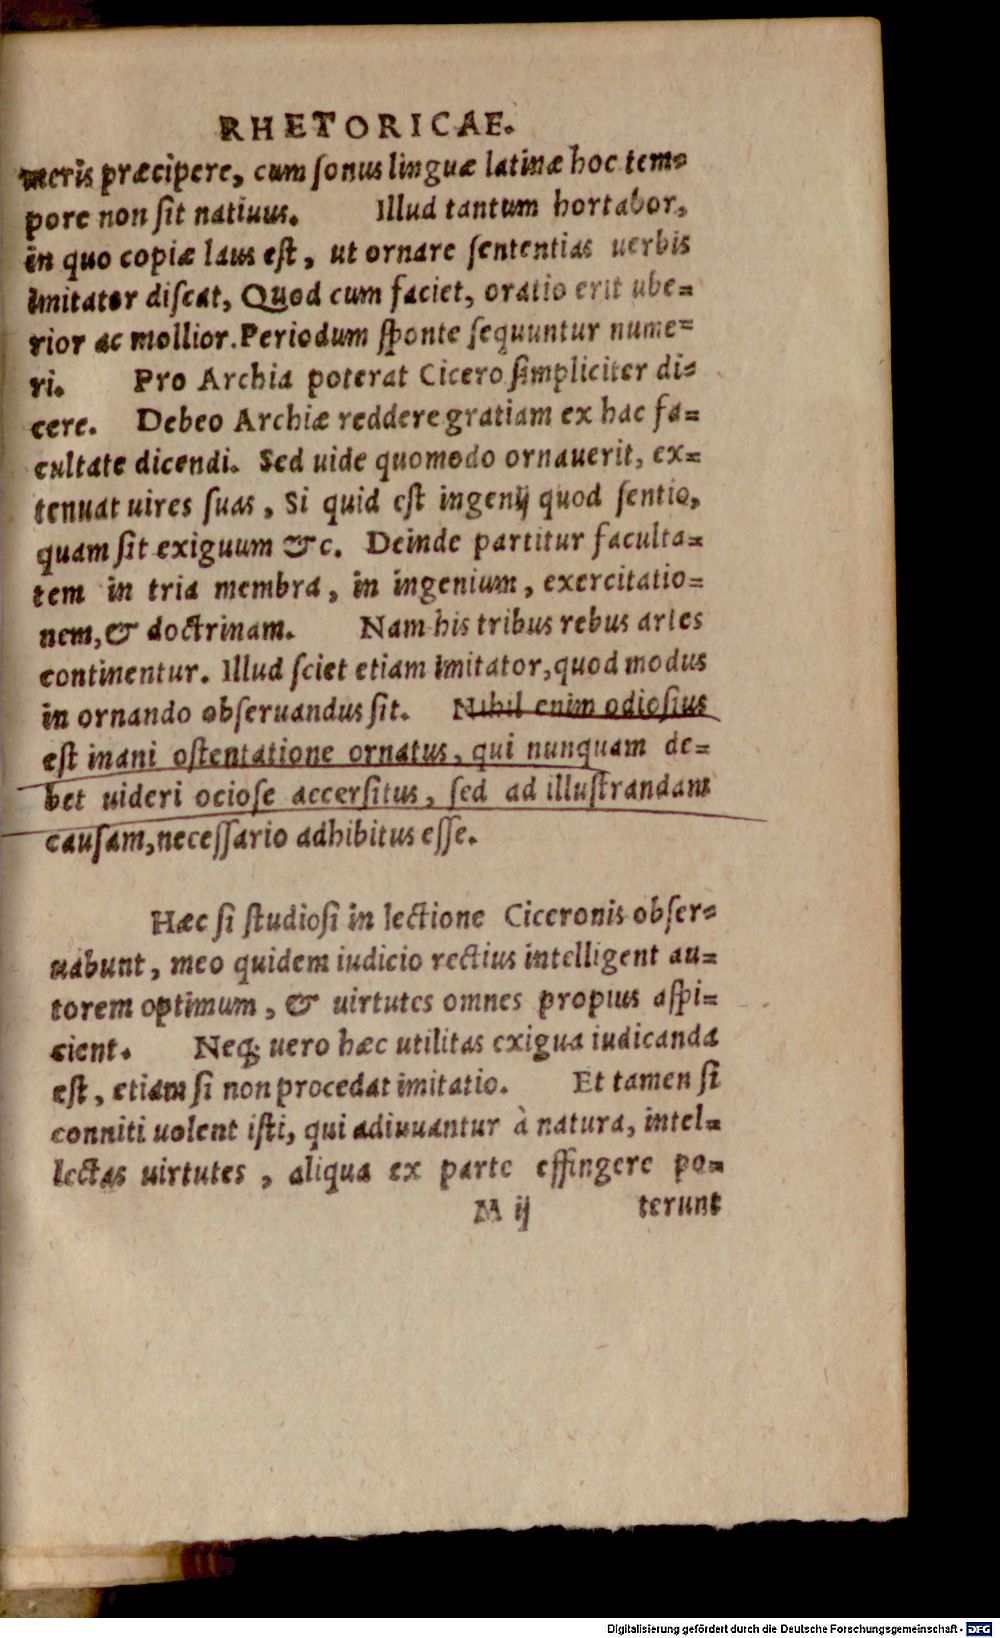 RHETORICAE.
meris præcipere, cum ſonus linguæ latinæ hoc tem-
pore non ſit natiuus. Illud tantum hortabor,
in quo copiæ laus eſt, ut ornare ſententias uerbis
imitator diſcat, Quod cum faciet, oratio erit ube-
rior ac mollior. Periodum ſponte ſequuntur nume-
ri. Pro Archia poterat Cicero ſimpliciter di-
cere. Debeo Archiæ reddere gratiam ex hac fa-
cultate dicendi. Sed uide quomodo ornauerit, ex-
tenuat uires ſuas, Si quid eſt ingenij quod ſentio,
quam ſit exiguum &c. Deinde partitur faculta-
tem in tria membra, in ingenium, exercitatio-
nem, & doctrinam. Nam his tribus rebus artes
continentur. Illud ſciet etiam imitator, quod modus
in ornando obſeruandus ſit. Nihil enim odioſius
eſt inani oſtentatione ornatus, qui nunquam de-
bet uideri ocioſe accerſitus, ſed ad illuſtrandam
cauſam, neceſſario adhibitus eſſe.
Hæc ſi ſtudioſi in lectione Ciceronis obſer-
uabunt, meo quidem iudicio rectius intelligent au-
torem optimum, & uirtutes omnes propius aſpi-
cient. Neq; uero hæc utilitas exigua iudicanda
eſt, etiam ſi non procedat imitatio. Et tamen ſi
conniti uolent iſti, qui adiuuantur à natura, intel-
lectas uirtutes, aliqua ex parte effingere po-
M ij terunt
Digitalisierung gefördert durch die Deutsche Forschungsgemeinschaft - DFG